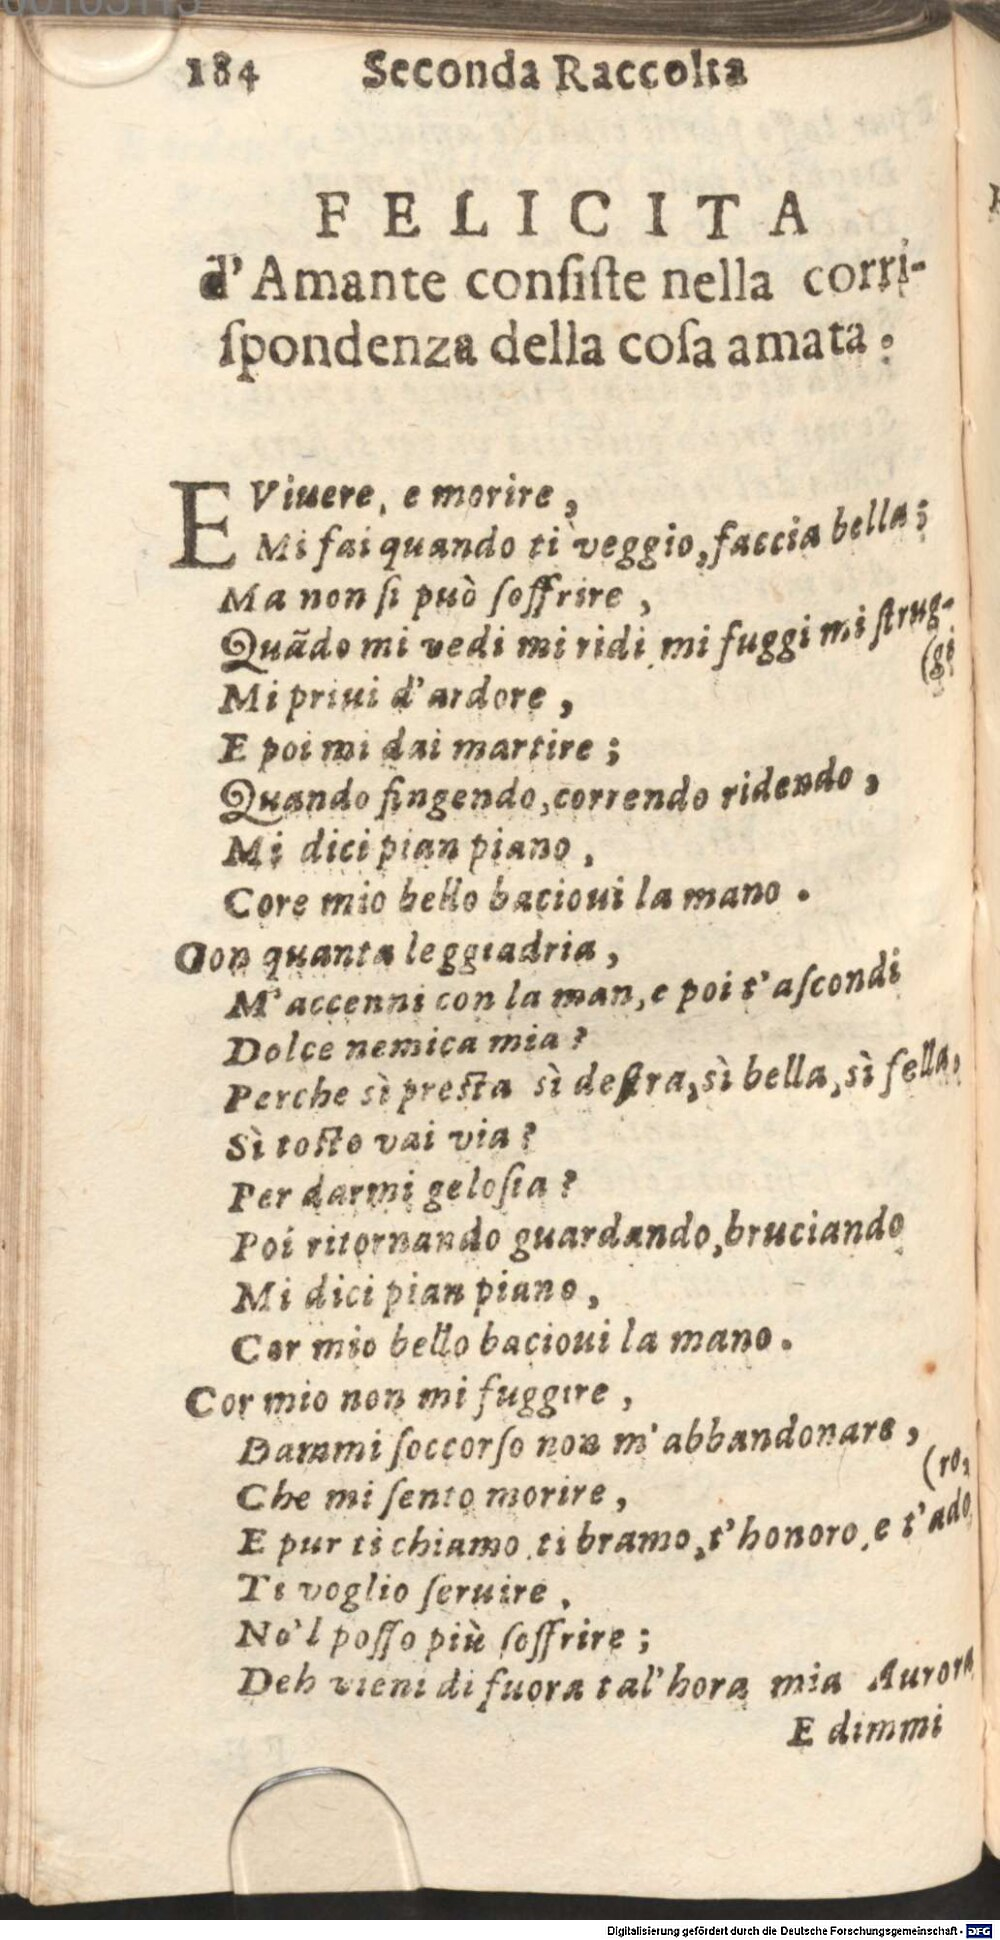 184 Seconda Raccolta
FELICITA
d'Amante consiſte nella corri-
ſpondenza della coſa amata.
E Viuere, e morire,
Mi fai quando ti veggio, faccia bella;
Ma non ſi può ſoffrire,
Quãdo mi vedi mi ridi mi fuggi mi ſtrug-
(gi
Mi priui d'ardore,
E poi mi dai martire;
Quando fingendo, correndo ridendo,
Mi dici pian piano,
Core mio bello bacioui la mano.
Con quanta leggiadria,
M'accenni con la man, e poi t'aſcondi
Dolce nemica mia?
Perche sì preſta sì deſtra, sì bella, sì fella,
Sì toſto vai via?
Per darmi geloſia?
Poi ritornando guardando, bruciando
Mi dici pian piano,
Cor mio bello bacioui la mano.
Cor mio non mi fuggire,
Dammi ſoccorſo non m'abbandonare,
Che mi ſento morire,
(ro,
E pur ti chiamo, ti bramo, t'honoro, e t'ado
Ti voglio ſeruire,
No'l poſſo più ſoffrire;
Deh vieni di fuora tal'hora mia Aurora
E dimmi
Digitalisierung gefördert durch die Deutsche Forschungsgemeinschaft - DFG